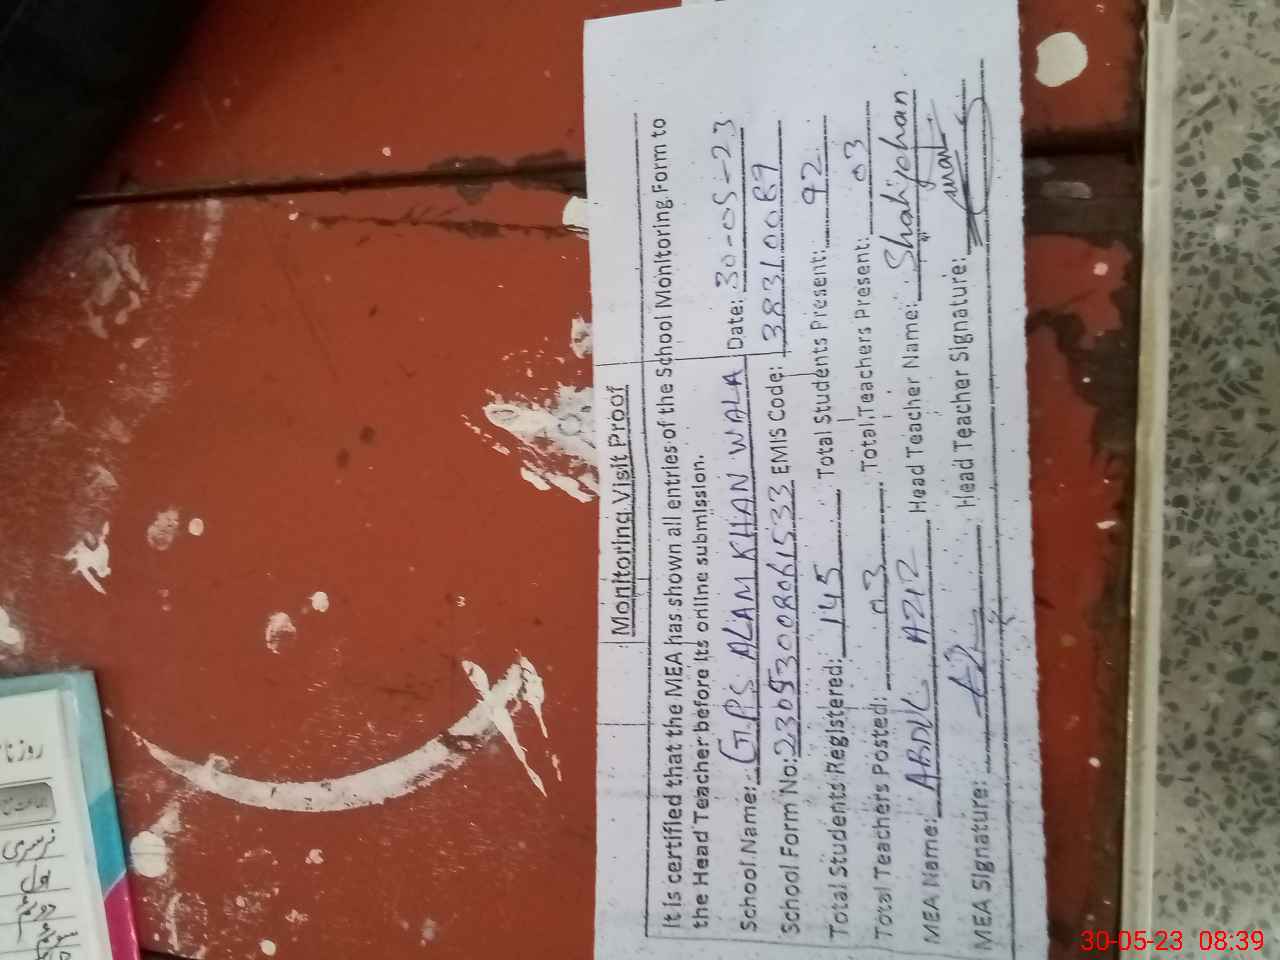 Monitoring Visit Proof
It is certified that the MEA has shown all entries of the School Monitoring Form to
the Head Teacher before its online submission.
School Name: G.P.S ALAM KHAN WALA Date: 30-05-23
School Form No: EMIS Code:
Total Students Registered: 145 Total Students Present: 92
Total Teachers Posted: 03 Total Teachers Present: 03
MEA Name: ABDUL AZIZ Head Teacher Name: Shahjehan
MEA Signature: Head Teacher Signature:
نرسری
اول
30-05-23 08:39